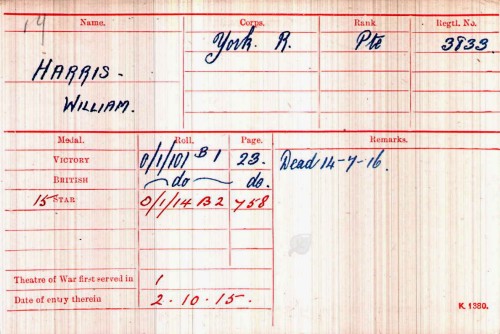 14
Name. Corps. Rank Regtl. No.
York. R. Pte 3933
HARRIS.
WILLIAM.
Medal. Roll. Page. Remarks.
VICTORY 0/1/101 B 1 23. Dead 14-7-16.
BRITISH do do.
15 STAR 0/1/14 B 2 758
Theatre of War first served in 1
Date of entry therein 2.10.15. K. 1380.